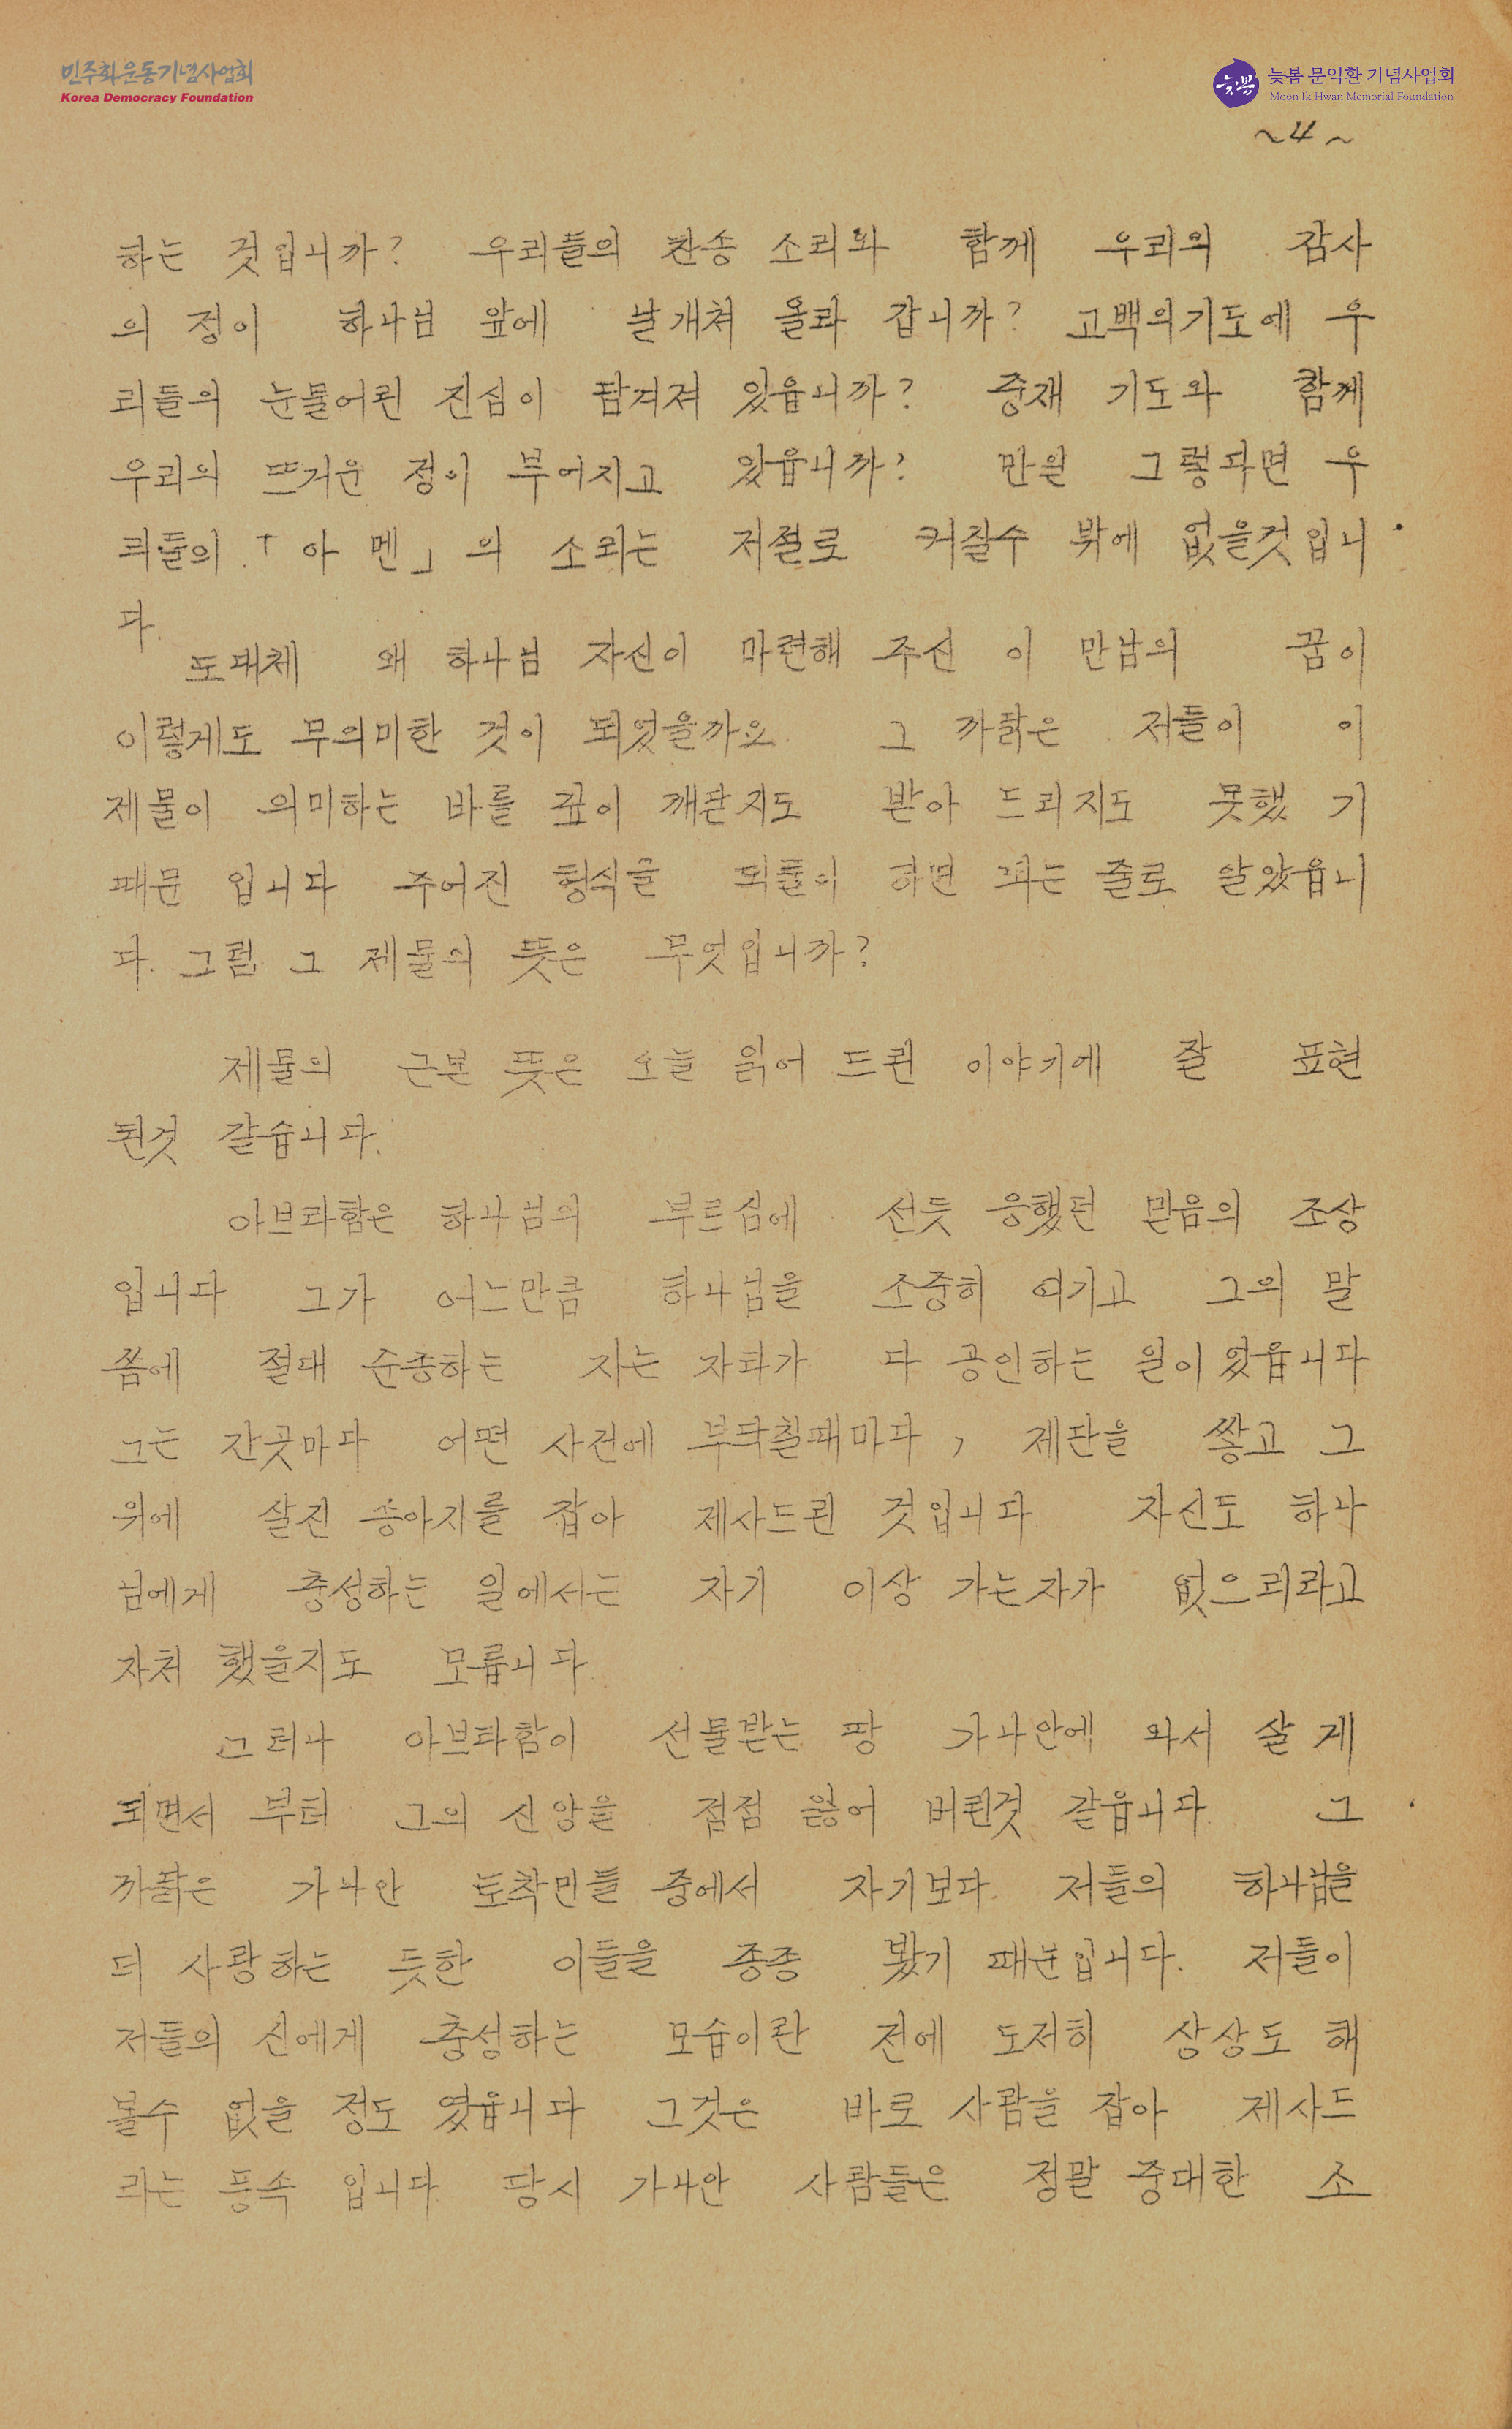 민주화운동기념사업회
Korea Democracy Foundation
늦봄 문익환 기념사업회
Moon Ik Hwan Memorial Foundation
~4~
하는 것입니까? 우리들의 찬송 소리와 함께 우리의 감사
의 정이 하나님 앞에 날개쳐 올라 갑니까? 고백의기도에 우
리들의 눈물어린 진심이 담겨져 있읍니까? 중재 기도와 함께
우리의 뜨거운 정이 부어지고 있읍니까? 만일 그렇다면 우
리들의 「아 멘」의 소리는 저절로 커질수 밖에 없을것입니
다.
도대체 왜 하나님 자신이 마련해 주신 이 만남의 꿈이
이렇게도 무의미한 것이 되었을까요 그 까닭은 저들이 이
제물이 의미하는 바를 깊이 깨닫지도 받아 드리지도 못했 기
때문 입니다 주어진 형식을 되풀이 하면 되는 줄로 알았읍니
다. 그럼 그 제물의 뜻은 무엇입니까?
제물의 근본 뜻은 오늘 읽어 드린 이야기에 잘 표현
된것 같습니다.
아브라함은 하나님의 부르심에 선듯 응했던 믿음의 조상
입니다 그가 어느만큼 하나님을 소중히 여기고 그의 말
씀에 절대 순종하는 지는 자타가 다 공인하는 일이었읍니다
그는 간곳마다 어떤 사건에 부닥칠때마다, 제단을 쌓고 그
위에 살진 송아지를 잡아 제사드린 것입니다 자신도 하나
님에게 충성하는 일에서는 자기 이상 가는자가 없으리라고
자처 했을지도 모릅니다
그러나 아브라함이 선물받는 땅 가나안에 와서 살 게
되면서 부터 그의 신앙을 점점 잃어 버린것 같읍니다. 그
까닭은 가나안 토착민들 중에서 자기보다 저들의 하나님을
더 사랑하는 듯한 이들을 종종 봤기 때문입니다. 저들이
저들의 신에게 충성하는 모습이란 전에 도저히 상상도 해
볼수 없을 정도 였읍니다 그것은 바로 사람을 잡아 제사드
리는 풍속 입니다 당시 가나안 사람들은 정말 중대한 소